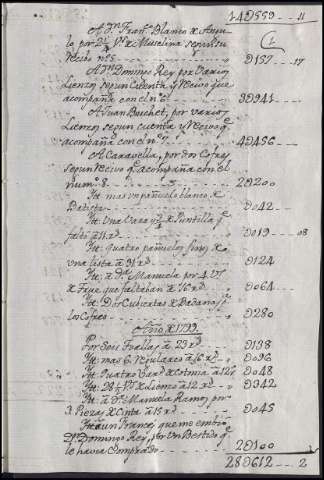 14D559 - 11
A Dn. Franco. Blanco x
lo por 2¼ Vs. x Muselina segun su
recibo no. 5 - - - D157 - 17
(1)
A Dn. Domingo Rey, por varios
Lienzos segun cuenta y recivo que
acompaña con el no. 6 - - - 3D941 -
A Juan Bouchet, por varios
Lienzos segun cuenta y recivo q.
acompaña con el no. 7 - - - 4D456 -
A Caravella, por dos Cofres
segun recivo q. acompaña con el
num. 8 - - - 2D200
Yt. mas un pañuelo blanco x
Batista - - - D042 -
Yt. Una vara y ¾ x Puntilla q.
faltó a 11 rs. - - - D019 - 08
Yt. quatro pañuelos finos x
una lista a 31 rs. - - - D124
Yt. a Da. Manuela por 4 Vs.
x que faltaban a 16 rs. - - - D064 -
Yt. Dos Cubiertas x Badana pa.
los Cofres - - - D280
Año x 1799
Por Seis a 23 rs. - - - D138
Yt. mas 6 a 16 rs. - - - D096
Yt. Quatro Vars. x Cotonia a 12 rs. D048
Yt. 28½ Vs. x Lienzo a 12 rs. - D342
Yt. a Da. Manuela Ramos, por
3 Piezas x Cinta a 15 rs. - - - D045
Yt. a un Frances que me embió
Dn. Domingo Rey, por un Bestido q.
le havia Comprado - - - 2D100
28D612 - 2